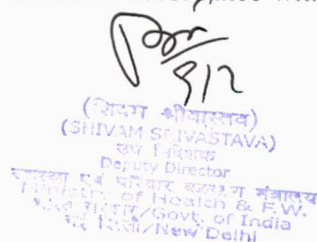 9/2
(शिवम श्रीवास्तव)
(SHIVAM SRIVASTAVA)
उप निदेशक
Deputy Director
स्वास्थ्य एवं परिवार कल्याण मंत्रालय
Ministry of Health & F.W.
भारत सरकार/Govt. of India
नई दिल्ली/New Delhi